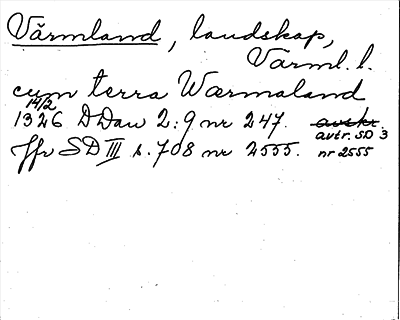 Värmland, landskap,
Värml. l.
cum terra Wærmaland
14/2
1326 DDan 2:9 nr 247. avskr.
avtr. SD 3
Jfr SD III s. 708 nr 2555. nr 2555